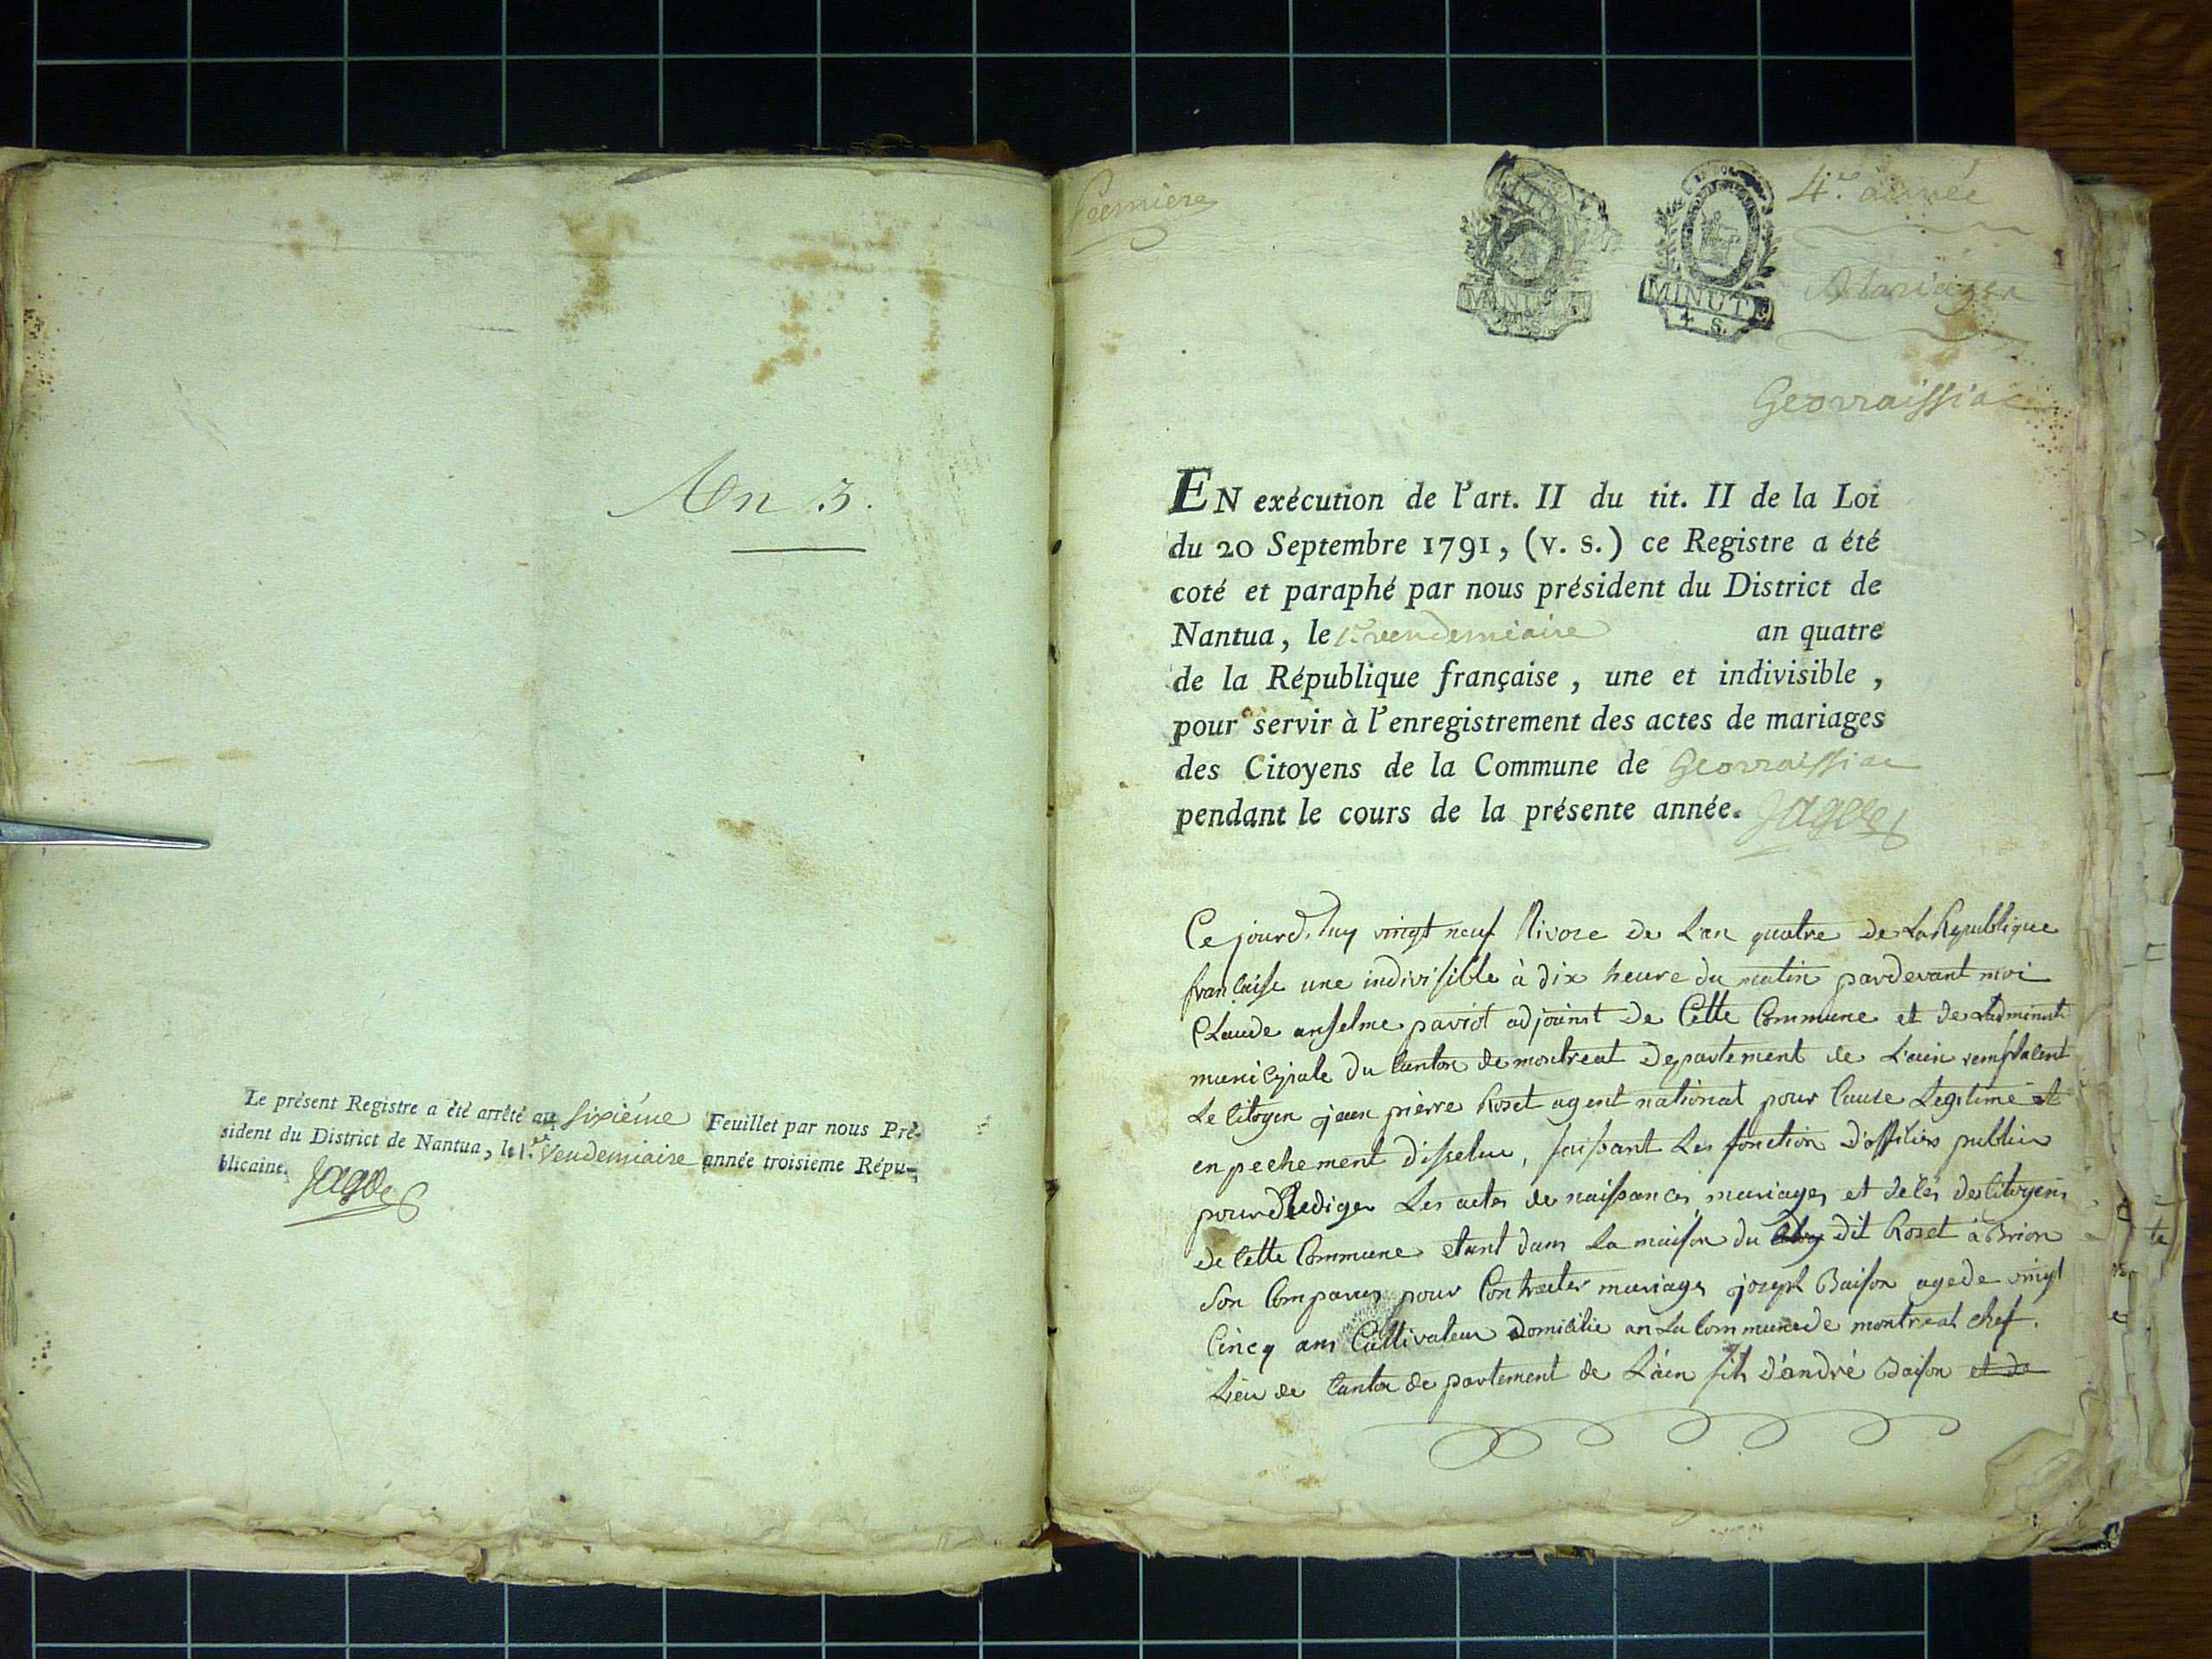 An 3.
Le présent Registre a été arrêté au sixième Feuillet par nous Pré-
sident du District de Nantua, le 1.er Vendemiaire année troisieme Répu-
blicaine. Jagot
premiere
4.e année
Mariages
MINUTE
MINUTE
4 S.
Geovraissiac
EN exécution de l'art. II du tit. II de la Loi
du 20 Septembre 1791, (v. s.) ce Registre a été
coté et paraphé par nous président du District de
Nantua, le 1.er vendemiaire an quatre
de la République française, une et indivisible,
pour servir à l'enregistrement des actes de mariages
des Citoyens de la Commune de Geovraissiac
pendant le cours de la présente année. Jagot
Ce jourd'huy vingt neuf Nivose de L'an quatre de La Republique
française une indivisible à dix heure du matin pardevant moi
Claude anselme paviot adjoinst de Cette Commune et de Ladministr
municipale du Canton de montreat Departement de L'ain remplacent
Le Citoyen jean pierre Roset agent national pour Cause Legitime et
enpechement diselue, faissant Les fonction D'officiers public
pour Rediger Les actes de naissances mariages et désés des Citoyens
de Cette Commune etant dans La maison du dit Roset à Brion
Son Comparus pour Contracter mariages joseph Baison age de vingt
Cincq ans Cultivateur Domicilie an La Commune de montreat chef.
Lieu de Canton de partement de L'ain fils D'andré Baison et de